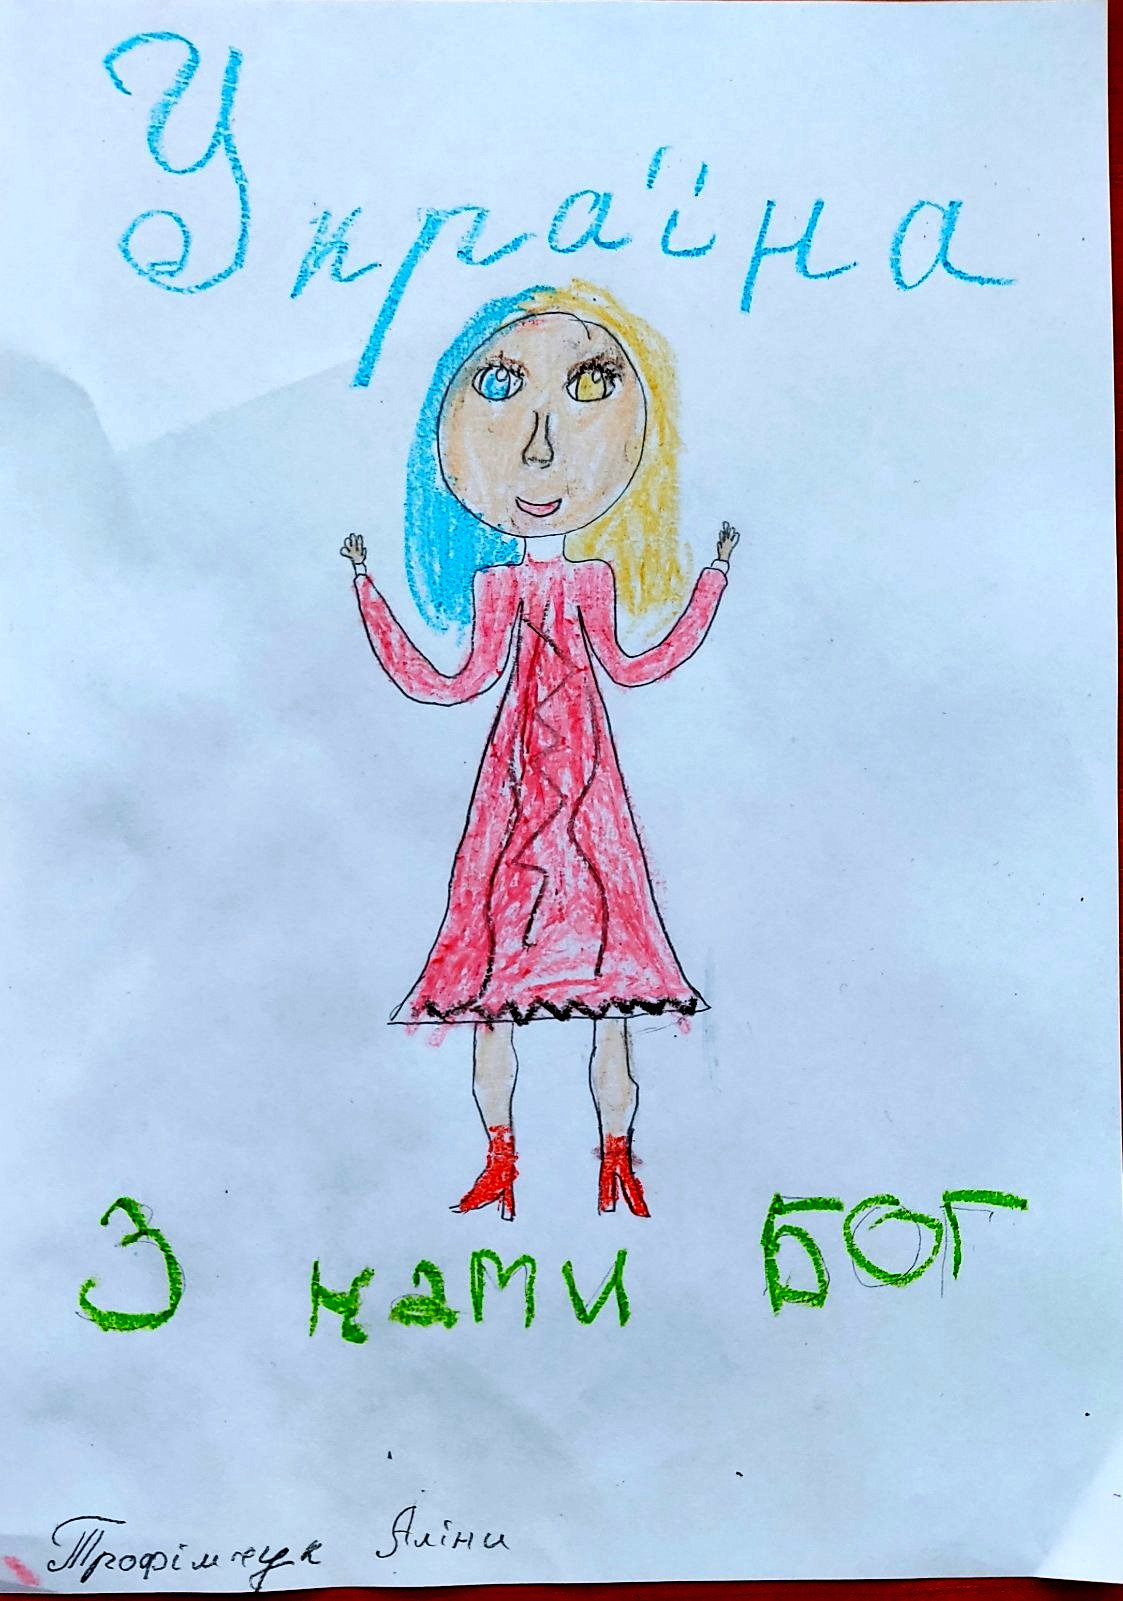 Україна
З нами БОГ
Трофімчук Аліни